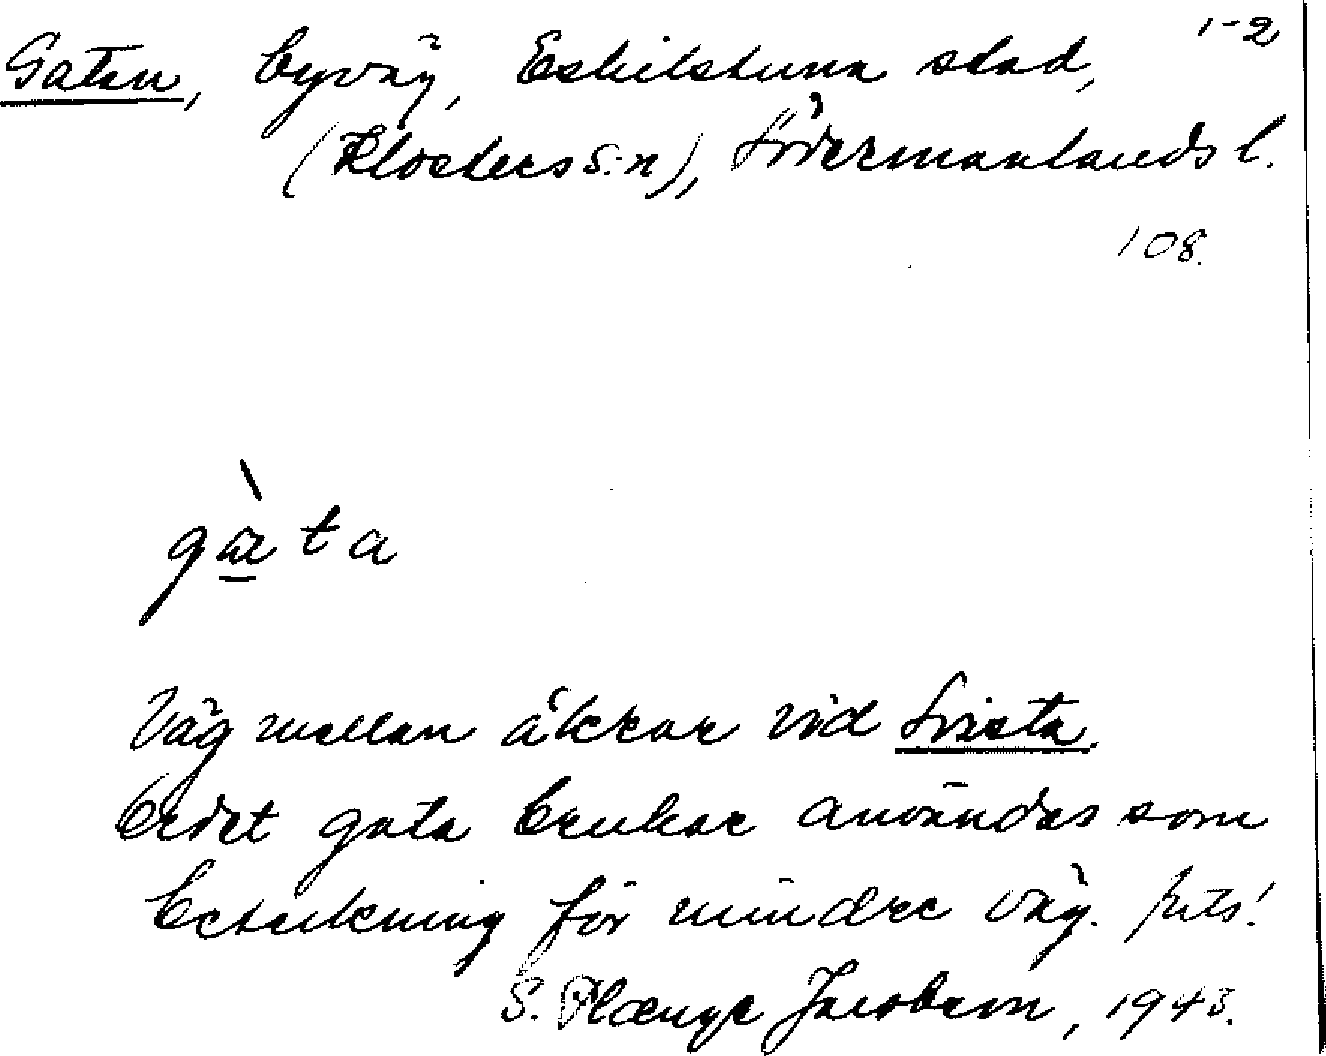 1-2
Gatan, byväg, Eskilstuna stad,
(Klosters s:n), Södermanlands l.
108.
gàta
Väg mellan åkrar vid Svista.
Ordet gata brukar användas som
beteckning för mindre väg.
S. Plænge Jacobson, 1943.